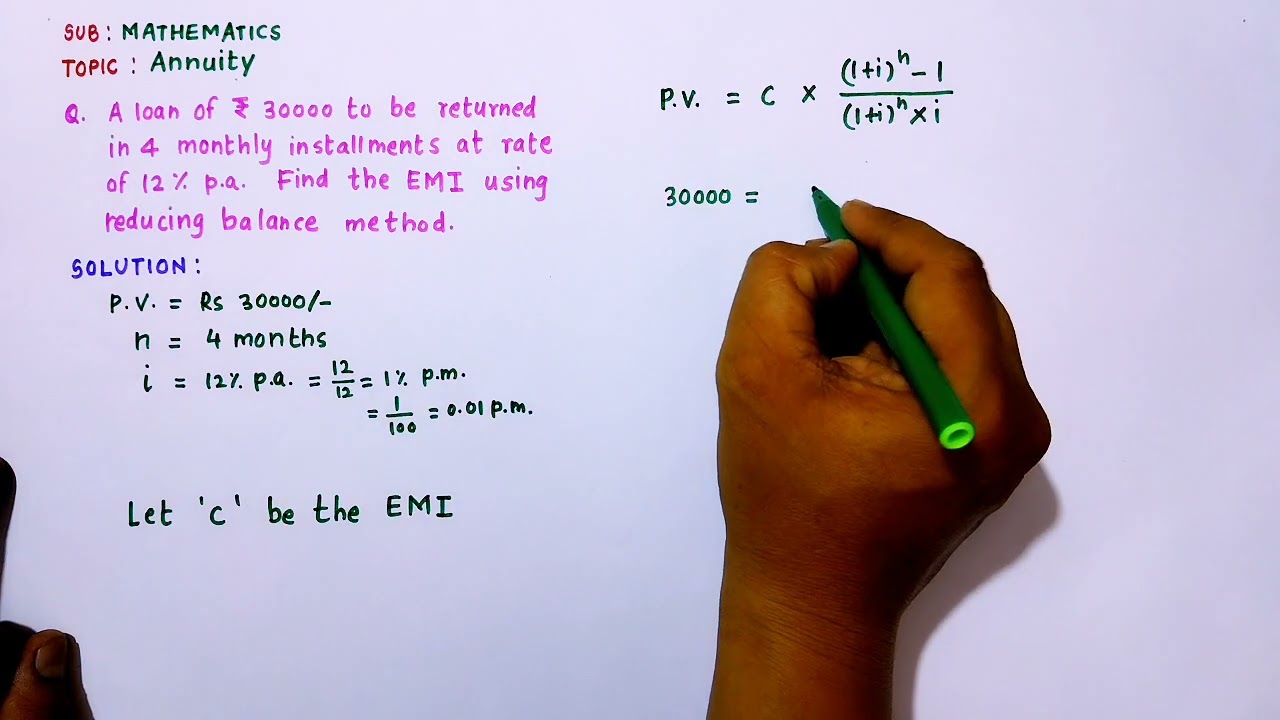 SUB : MATHEMATICS
TOPIC : Annuity
Q. A loan of ₹ 30000 to be returned
in 4 monthly installments at rate
of 12% p.a. Find the EMI using
reducing balance method.
SOLUTION :
P.V. = Rs 30000/-
n = 4 months
i = 12% p.a. = 12/12 = 1% p.m.
= 1/100 = 0.01 p.m.
Let 'c' be the EMI
P.V. = C × (1+i)^n - 1 / (1+i)^n × i
30000 =